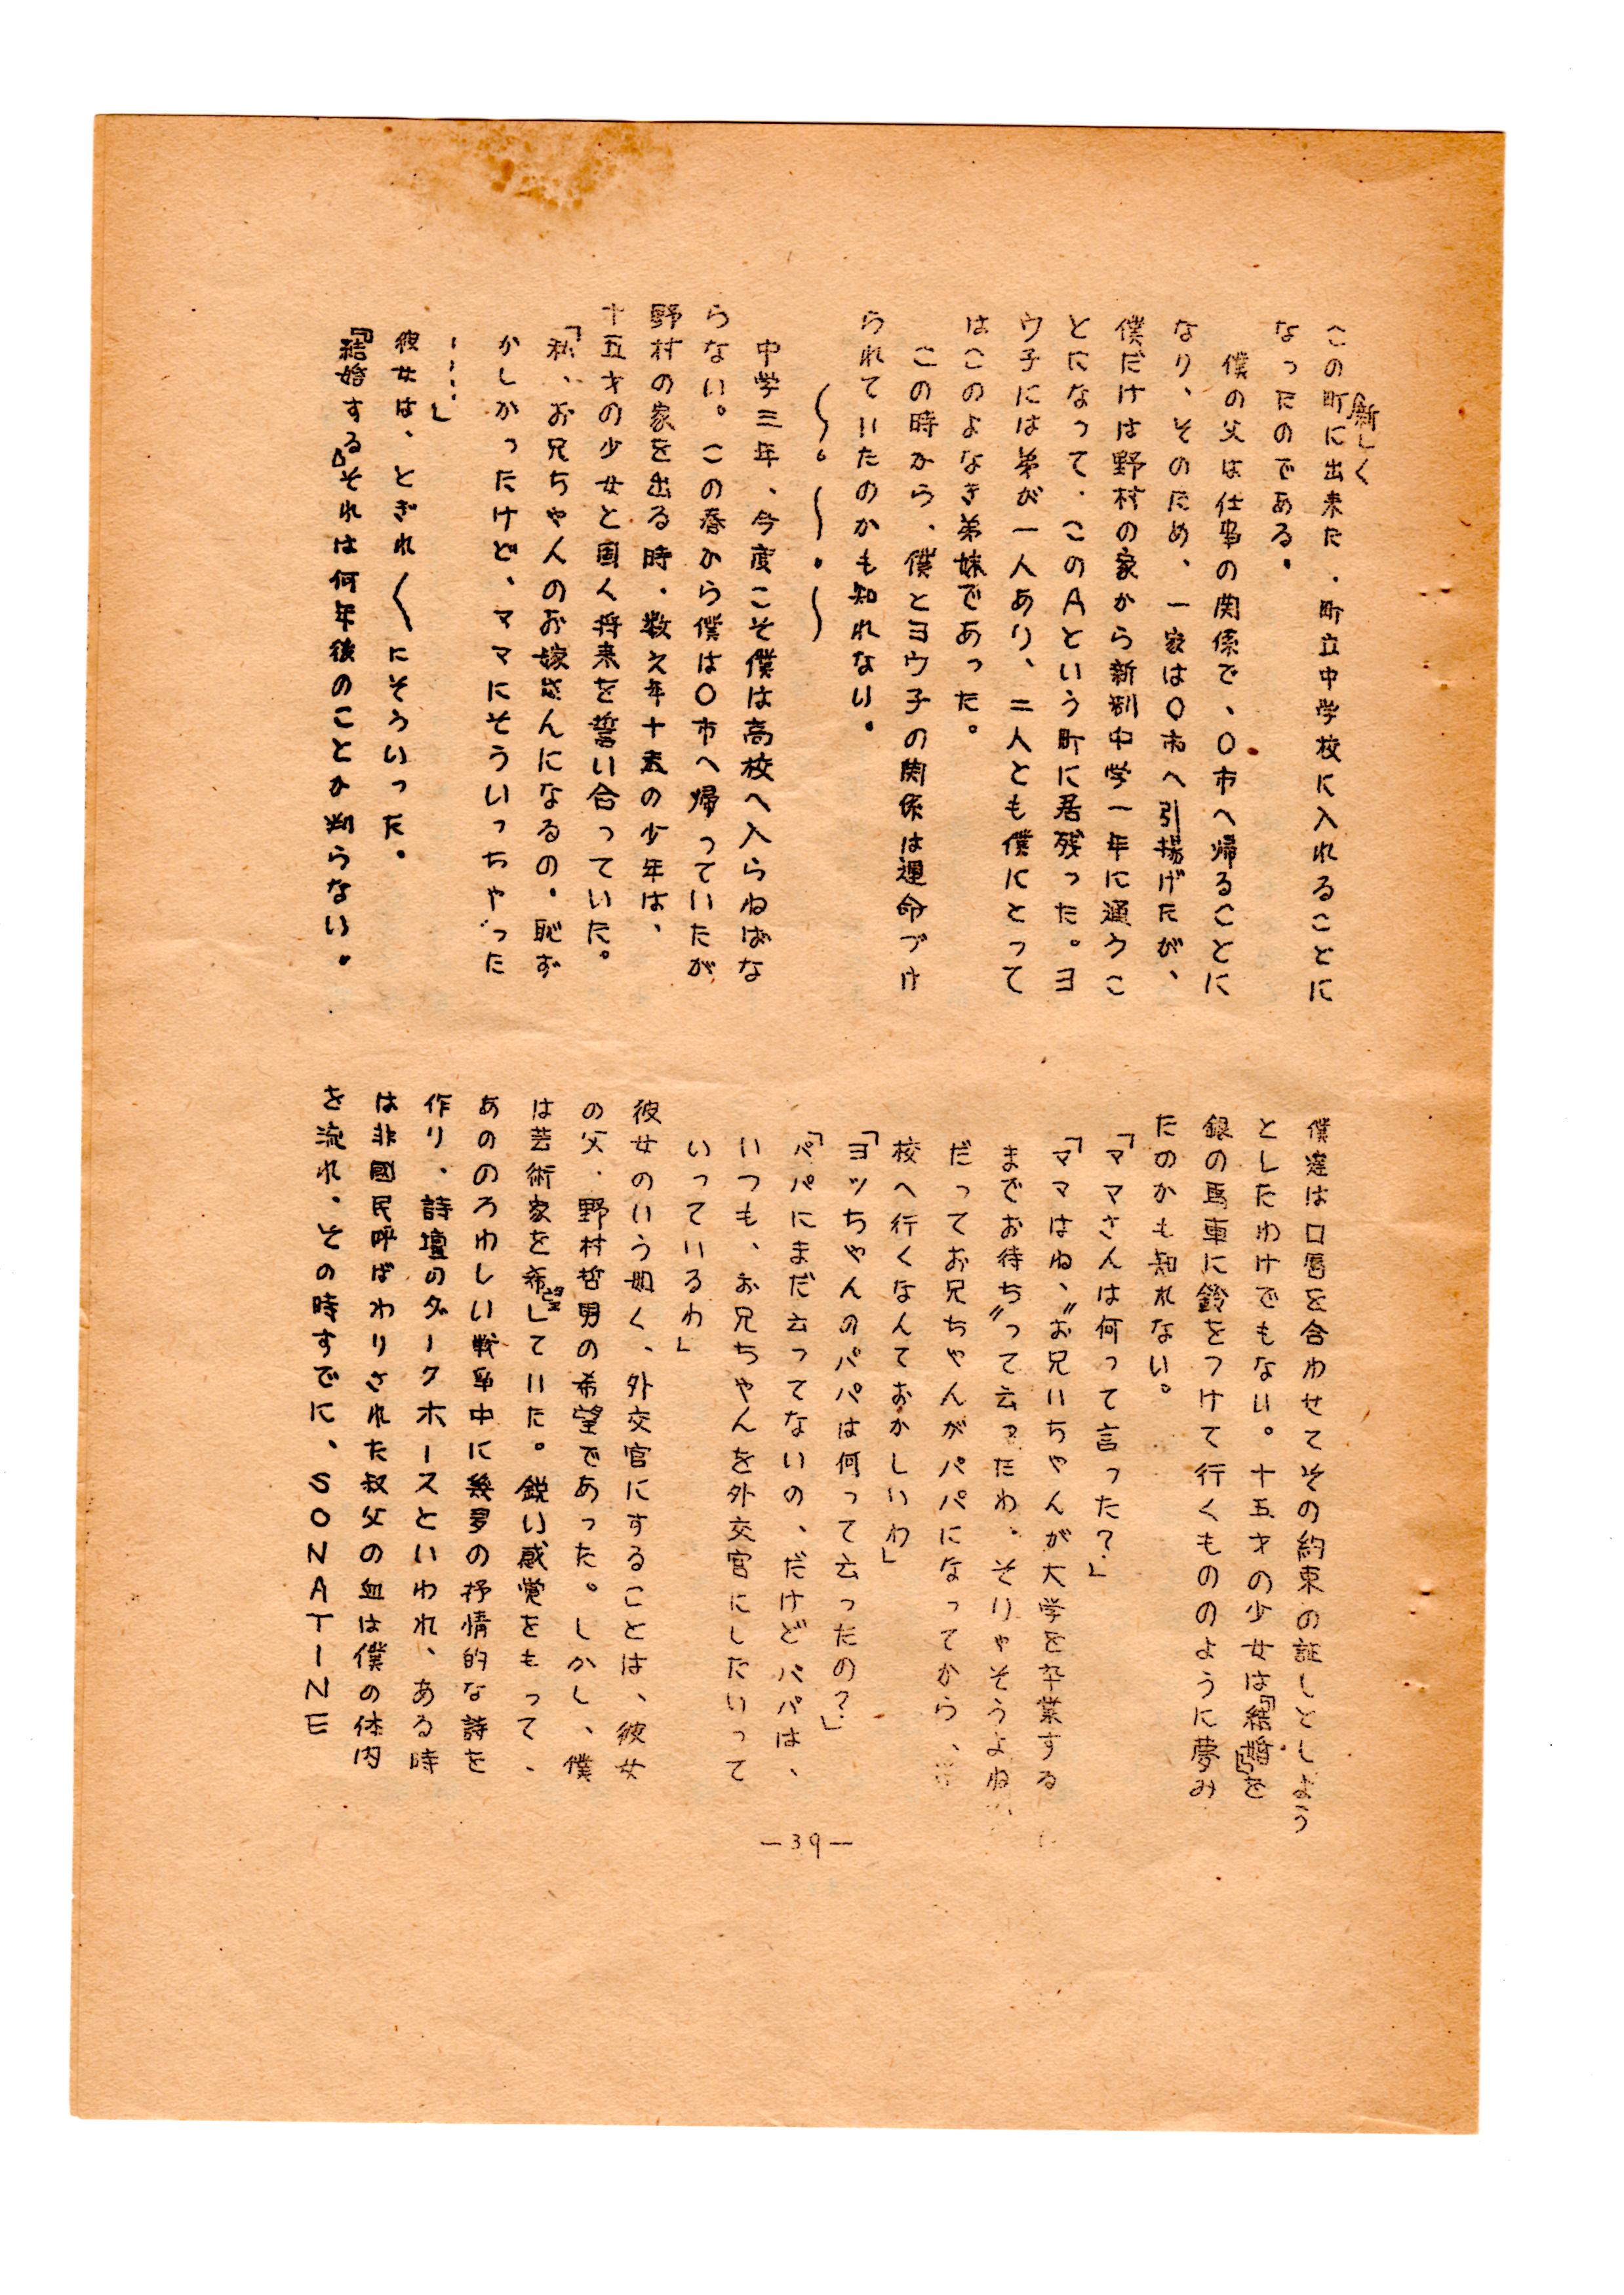 この町に新しく出来た、町立中学校に入れることに
なったのである。
僕の父は仕事の関係で、O市へ帰ることに
なり、そのため、一家はO市へ引揚げたが、
僕だけは野村の家から新制中学一年に通うこ
とになって、このAという町に居残った。ヨ
ウ子には弟が一人あり、二人とも僕にとって
はこのよなき弟妹であった。
この時から、僕とヨウ子の関係は運命づけ
られていたのかも知れない。
〜。〜。〜
中学三年、今度こそ僕は高校へ入らねばな
らない。この春から僕はO市へ帰っていたが
野村の家を出る時、数え年十六の少年は、
十五才の少女と固く将来を誓い合っていた。
「私、お兄ちゃんのお嫁さんになるの。恥ず
かしかったけど、ママにそういっちゃった
‥‥」
彼女は、とぎれ〱にそういった。
『結婚する』それは何年後のことか判らない。
僕達は口唇を合わせてその約束の証しとしよう
としたわけでもない。十五才の少女は『結婚』を
銀の馬車に鈴をつけて行くもののように夢み
たのかも知れない。
「ママさんは何って言った？」
「ママはね、〝お兄いちゃんが大学を卒業する
までお待ち〟って云ったわ。そりゃそうよね、
だってお兄ちゃんがパパになってから、学
校へ行くなんておかしいわ」
「ヨッちゃんのパパは何って云ったの？」
「パパにまだ云ってないの、だけどパパは、
いつも、お兄ちゃんを外交官にしたいって
いっているわ」
彼女のいう如く、外交官にすることは、彼女
の父、野村哲男の希望であった。しかし、僕
は芸術家を希望していた。鋭い感覚をもって、
あののろわしい戦争中に幾多の抒情的な詩を
作り、詩壇のダークホースといわれ、ある時
は非國民呼ばわりされた叔父の血は僕の体内
を流れ、その時すでに、SONATINE
—39—